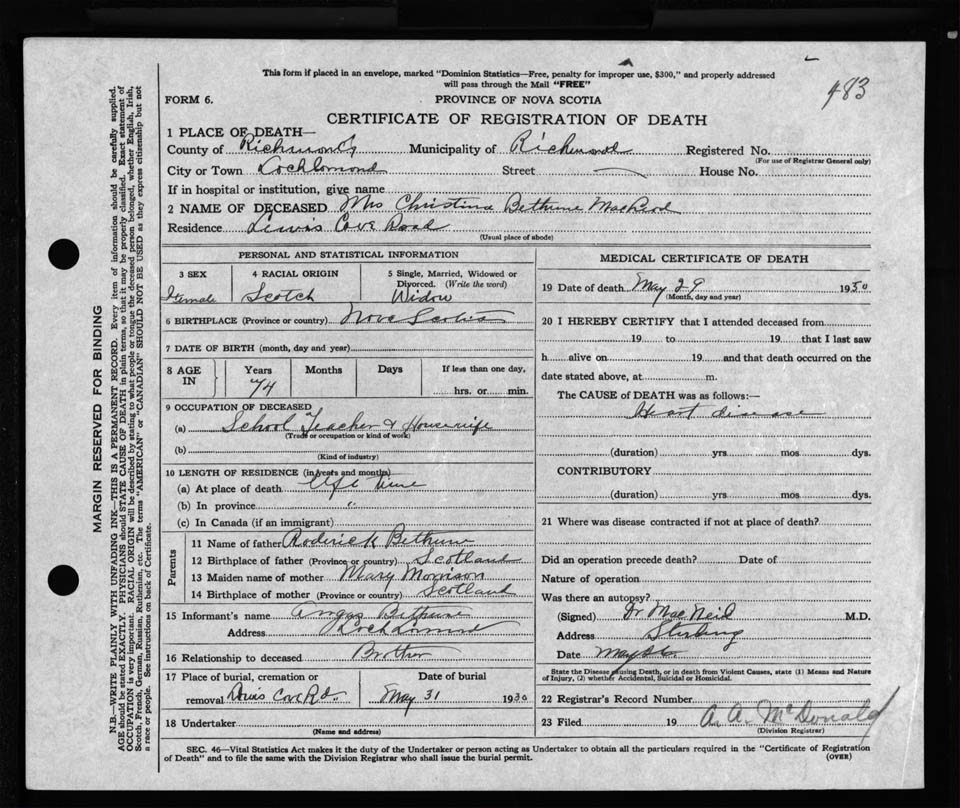 This form if placed in an envelope, marked "Dominion Statistics—Free, penalty for improper use, $300," and properly addressed
will pass through the Mail "FREE"
483
FORM 6.
PROVINCE OF NOVA SCOTIA
CERTIFICATE OF REGISTRATION OF DEATH
1 PLACE OF DEATH—
County of Richmond Municipality of Richmond Registered No.
(For use of Registrar General only)
City or Town Loch Lomond Street House No.
If in hospital or institution, give name
2 NAME OF DECEASED Mrs Christina Bethune MacLeod
Residence Lewis Cove Road
(Usual place of abode)
PERSONAL AND STATISTICAL INFORMATION
3 SEX
Female
4 RACIAL ORIGIN
Scotch
5 Single, Married, Widowed or
Divorced. (Write the word)
Widow
6 BIRTHPLACE (Province or country) Nova Scotia
7 DATE OF BIRTH (month, day and year)
8 AGE
IN
Years
74
Months
Days
If less than one day,
hrs. or min.
9 OCCUPATION OF DECEASED
(a) School Teacher & Housewife
(Trade or occupation or kind of work)
(b)
(Kind of industry)
10 LENGTH OF RESIDENCE (in years and months)
(a) At place of death Life time
(b) In province "
(c) In Canada (if an immigrant)
Parents
11 Name of father Roderick Bethune
12 Birthplace of father (Province or country) Scotland
13 Maiden name of mother Mary Morrison
14 Birthplace of mother (Province or country) Scotland
15 Informant's name Angus Bethune
Address Loch Lomond
16 Relationship to deceased Brother
17 Place of burial, cremation or
removal Cove Rd.
Date of burial
May 31 1930
18 Undertaker
(Name and address)
MEDICAL CERTIFICATE OF DEATH
19 Date of death May 29 1930
(Month, day and year)
20 I HEREBY CERTIFY that I attended deceased from
19 to 19 that I last saw
h alive on 19 and that death occurred on the
date stated above, at m.
The CAUSE of DEATH was as follows:—
Heart disease
(duration) yrs mos dys.
CONTRIBUTORY
(duration) yrs mos dys.
21 Where was disease contracted if not at place of death?
Did an operation precede death? Date of
Nature of operation
Was there an autopsy?
(Signed) Dr MacNeil M.D.
Address Stirling
Date May
State the Disease causing Death, or in death from Violent Causes, state (1) Means and Nature
of Injury, (2) whether Accidental, Suicidal or Homicidal.
22 Registrar's Record Number
23 Filed 19 A. A. McDonald
(Division Registrar)
SEC. 46—Vital Statistics Act makes it the duty of the Undertaker or person acting as Undertaker to obtain all the particulars required in the "Certificate of Registration
of Death" and to file the same with the Division Registrar who shall issue the burial permit.
(OVER)
MARGIN RESERVED FOR BINDING
N.B.—WRITE PLAINLY WITH UNFADING INK—THIS IS A PERMANENT RECORD. Every item of information should be carefully supplied.
AGE should be stated EXACTLY. PHYSICIANS should STATE CAUSE OF DEATH in plain terms, so that it may be properly classified. Exact statement of
OCCUPATION is very important. RACIAL ORIGIN will be described by stating to what people or tongue the deceased person belonged, whether English, Irish,
Scotch, French, German, Russian, Ruthenian, etc. The terms "AMERICAN" or "CANADIAN" SHOULD NOT BE USED as they express citizenship but not
a race or people. See instructions on back of Certificate.